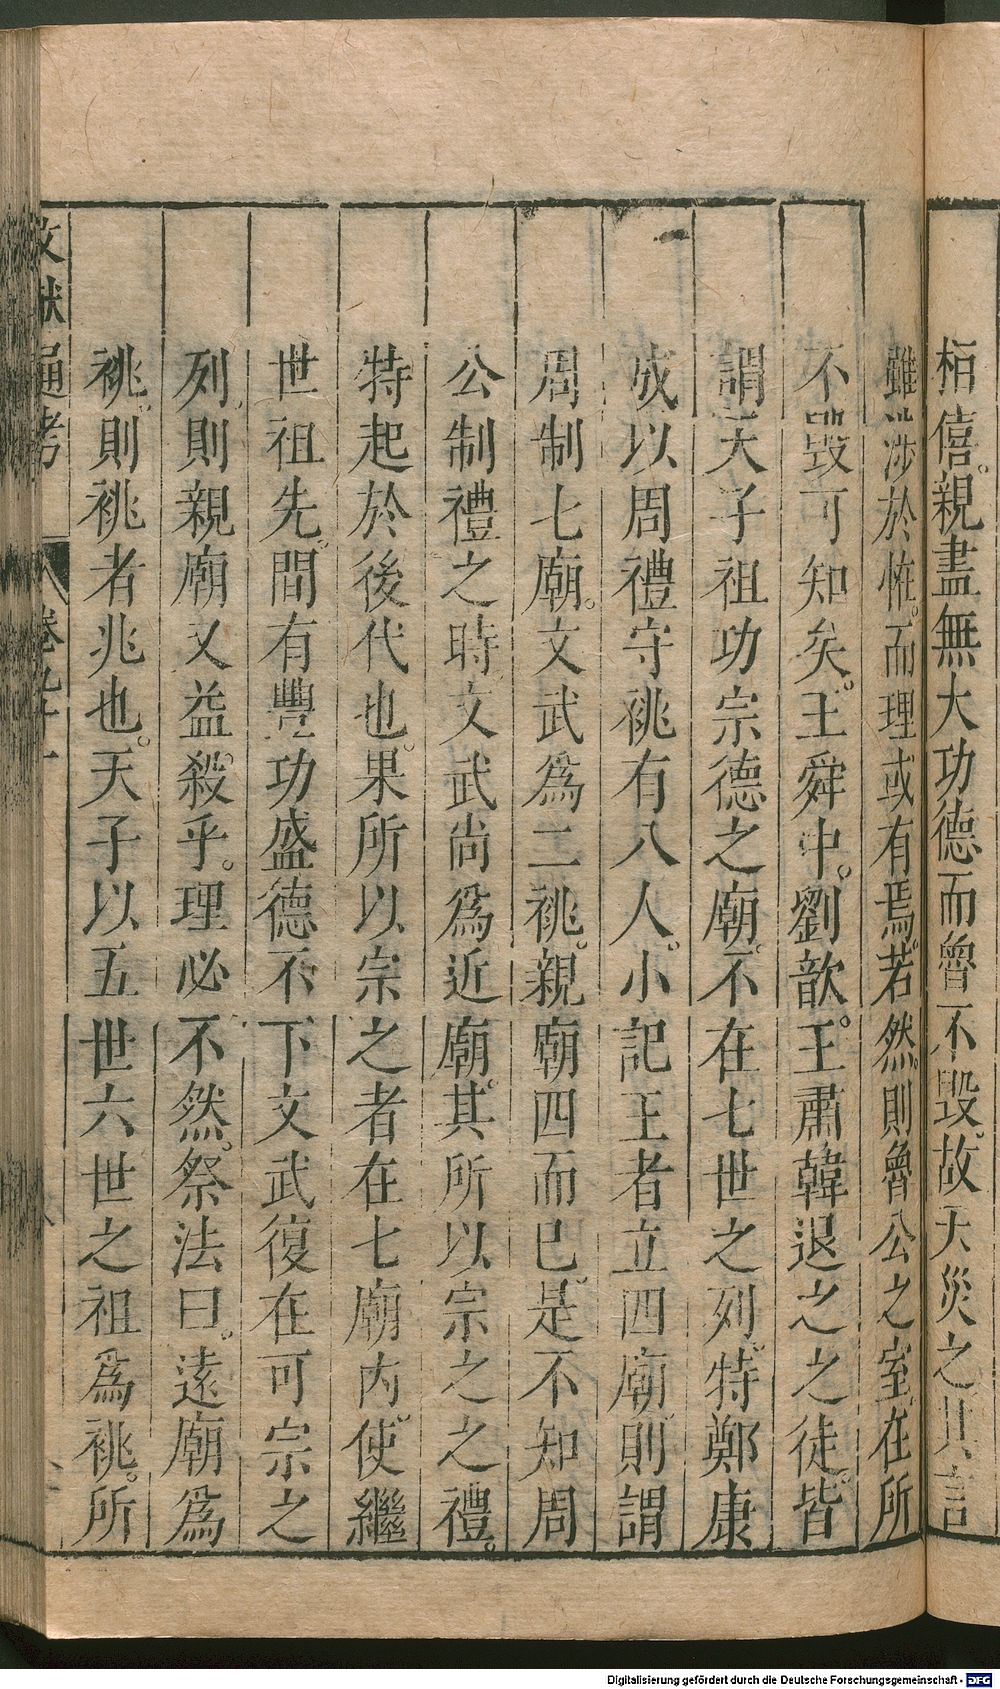 栢僖。親盡無大功德而魯不毀。故天災之其言
雖涉於恠。而理或有焉。若然。則魯公之室在所
不毀可知矣。王舜中。劉歆。王肅韓退之之徒。皆
謂天子祖功宗德之廟。不在七世之列。特鄭康
成以周禮守祧有八人。小記王者立四廟。則謂
周制七廟。文武爲二祧。親廟四而已。是不知周
公制禮之時。文武尚爲近廟。其所以宗之之禮。
特起於後代也。果所以宗之者在七廟内。使繼
世祖先。間有豐功盛德不下文武。復在可宗之
列。則親廟又益殺乎。理必不然。祭法曰。遠廟爲
祧。則祧者兆也。天子以五世六世之祖爲祧。所
文獻通考 卷九十一
Digitalisierung gefördert durch die Deutsche Forschungsgemeinschaft - DFG